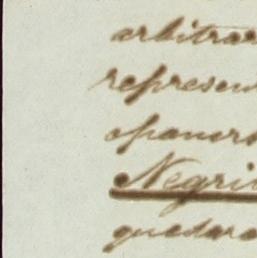 arbitrar
represen
oponers
Negri
quedara